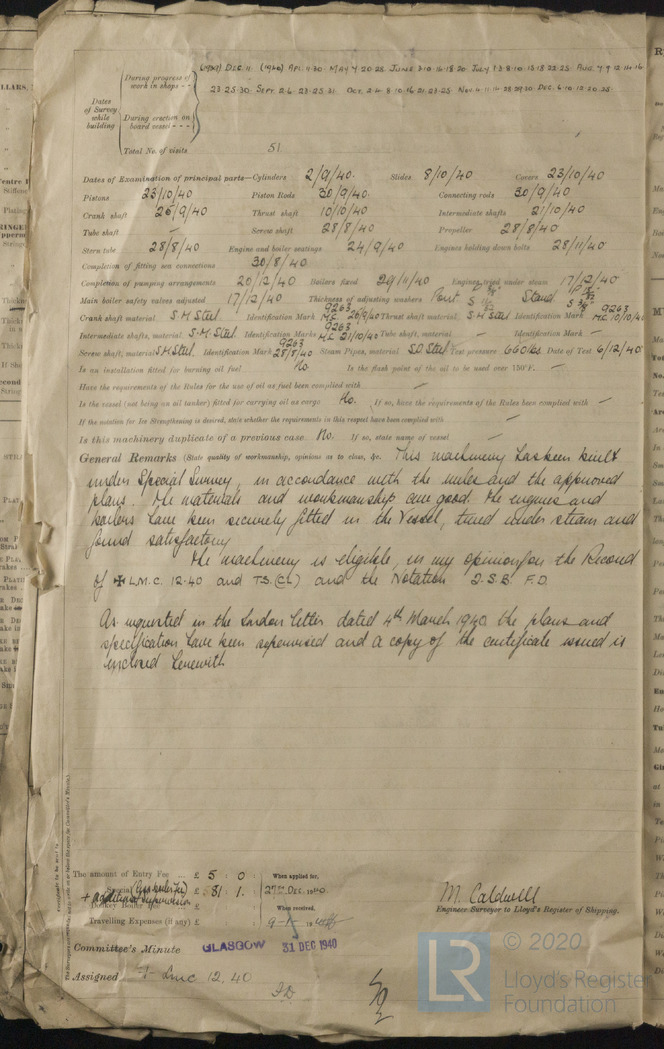 (1939) DEC. 11. (1940) APL. 11. 30. MAY 7. 20. 28. JUNE 3. 10. 14. 18. 20. JULY 1. 3. 8. 10. 15. 18. 22. 25. AUG. 7. 9. 12. 14. 16
During progress of work in shops - -
23. 25. 30 SEPT. 2. 6. 23. 25. 31. OCT. 2. 4. 8. 10. 16. 21. 23. 25. NOV. 4. 11. 14. 28. 29. 30 DEC. 6. 10. 12. 20. 25.
Dates of Survey while building
During erection on board vessel - - -
Total No. of visits 51
Dates of Examination of principal parts—Cylinders 2/9/40. Slides 8/10/40 Covers 23/10/40
Pistons 23/10/40 Piston Rods 30/9/40. Connecting rods 30/9/40
Crank shaft 26/9/40 Thrust shaft 10/10/40 Intermediate shafts 21/10/40
Tube shaft – Screw shaft 28/8/40 Propeller 28/8/40
Stern tube 28/8/40 Engine and boiler seatings 24/9/40 Engines holding down bolts 28/11/40
Completion of fitting sea connections 30/8/40
Completion of pumping arrangements 20/12/40 Boilers fixed 29/11/40 Engines tried under steam 17/12/40
Main boiler safety valves adjusted 17/12/40 Thickness of adjusting washers Port Starbd
Crank shaft material S.M Steel Identification Mark 9263 M.C. 26/9/40 Thrust shaft material S.M Steel Identification Mark 9263 M.C. 10/10/40
Intermediate shafts, material S.M. Steel Identification Marks 9263 M.C. 21/10/40 Tube shaft, material – Identification Mark –
Screw shaft, material S.M Steel Identification Mark 9263 28/8/40 Steam Pipes, material S.D Steel Test pressure 660 lbs. Date of Test 6/12/40
Is an installation fitted for burning oil fuel No Is the flash point of the oil to be used over 150°F. –
Have the requirements of the Rules for the use of oil as fuel been complied with –
Is the vessel (not being an oil tanker) fitted for carrying oil as cargo No. If so, have the requirements of the Rules been complied with –
If the notation for Ice Strengthening is desired, state whether the requirements in this respect have been complied with –
Is this machinery duplicate of a previous case No. If so, state name of vessel –
General Remarks (State quality of workmanship, opinions as to class, &c. This machinery has been built
under Special Survey, in accordance with the rules and the approved
plans. The materials and workmanship are good. The engines and
boilers have been securely fitted in the Vessel, tried under steam and
found satisfactory
The machinery is eligible, in my opinion for the Record
of ✠ L.M.C. 12.40 and T.S. (CL) and the Notation 2.S.B. F.D.
As requested in the London letter dated 4th March 1940 the plans and
specification have been supervised and a copy of the certificate issued is
enclosed herewith
The amount of Entry Fee ... £ 5 : 0 : When applied for,
Special £ 81 : 1 : 27th DEC. 1940
+ additional supervision
Donkey Boiler Fee £ : : When received,
Travelling Expenses (if any) £ : :
M. Caldwell
Engineer Surveyor to Lloyd's Register of Shipping.
Committee's Minute GLASGOW 31 DEC 1940
Assigned + LMC 12, 40
FD
LR
© 2020
Lloyd's Register
Foundation